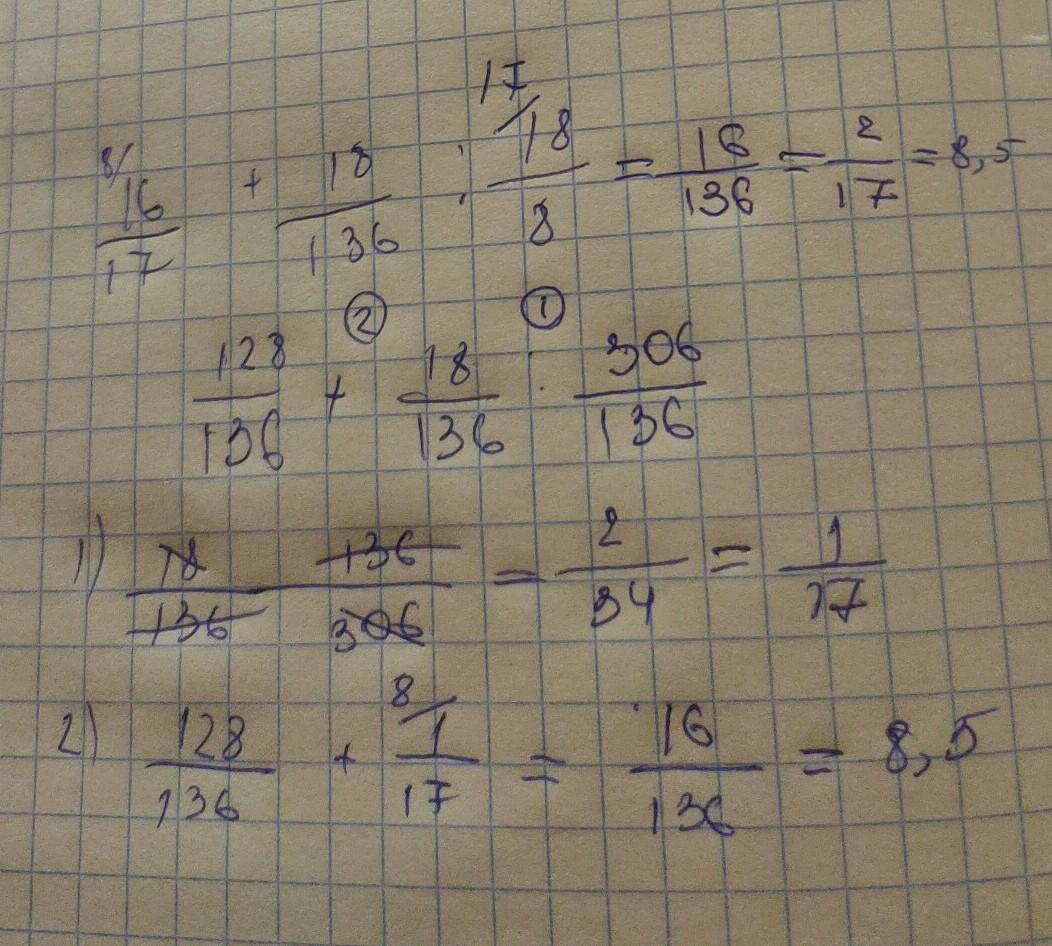 8/ 16/17 + 18/136 : 17/ 18/8 = 16/136 = 2/17 = 8,5
② ①
128/136 + 18/136 : 306/136
1) 18/136 136/306 = 2/34 = 1/17
2) 128/136 + 8/ 1/17 = 16/136 = 8,5